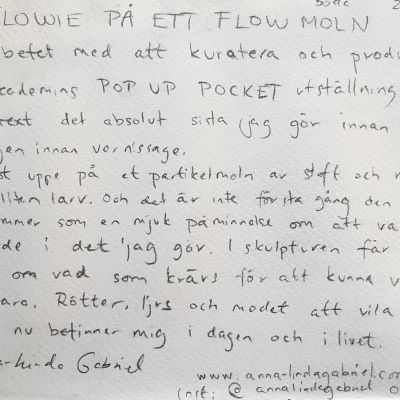 FLOWIE PÅ ETT FLOW MOLN
betet med att kuratera och produ
cademins POP UP POCKET utställning
text det absolut sista jag gör innan
gen innan vernissage.
st uppe på ett partikelmoln av stoft och
liten larv. Och det är inte första gång den
mmer som en mjuk påminnelse om att va
de i det jag gör. I skulpturen får
om vad som krävs för att kunna v
ara. Rötter, ljus och modet att vila
nu befinner mig i dagen och i livet.
a-linda Gabriel
www.anna-lindagabriel.com
Inst: @annalindagabriel